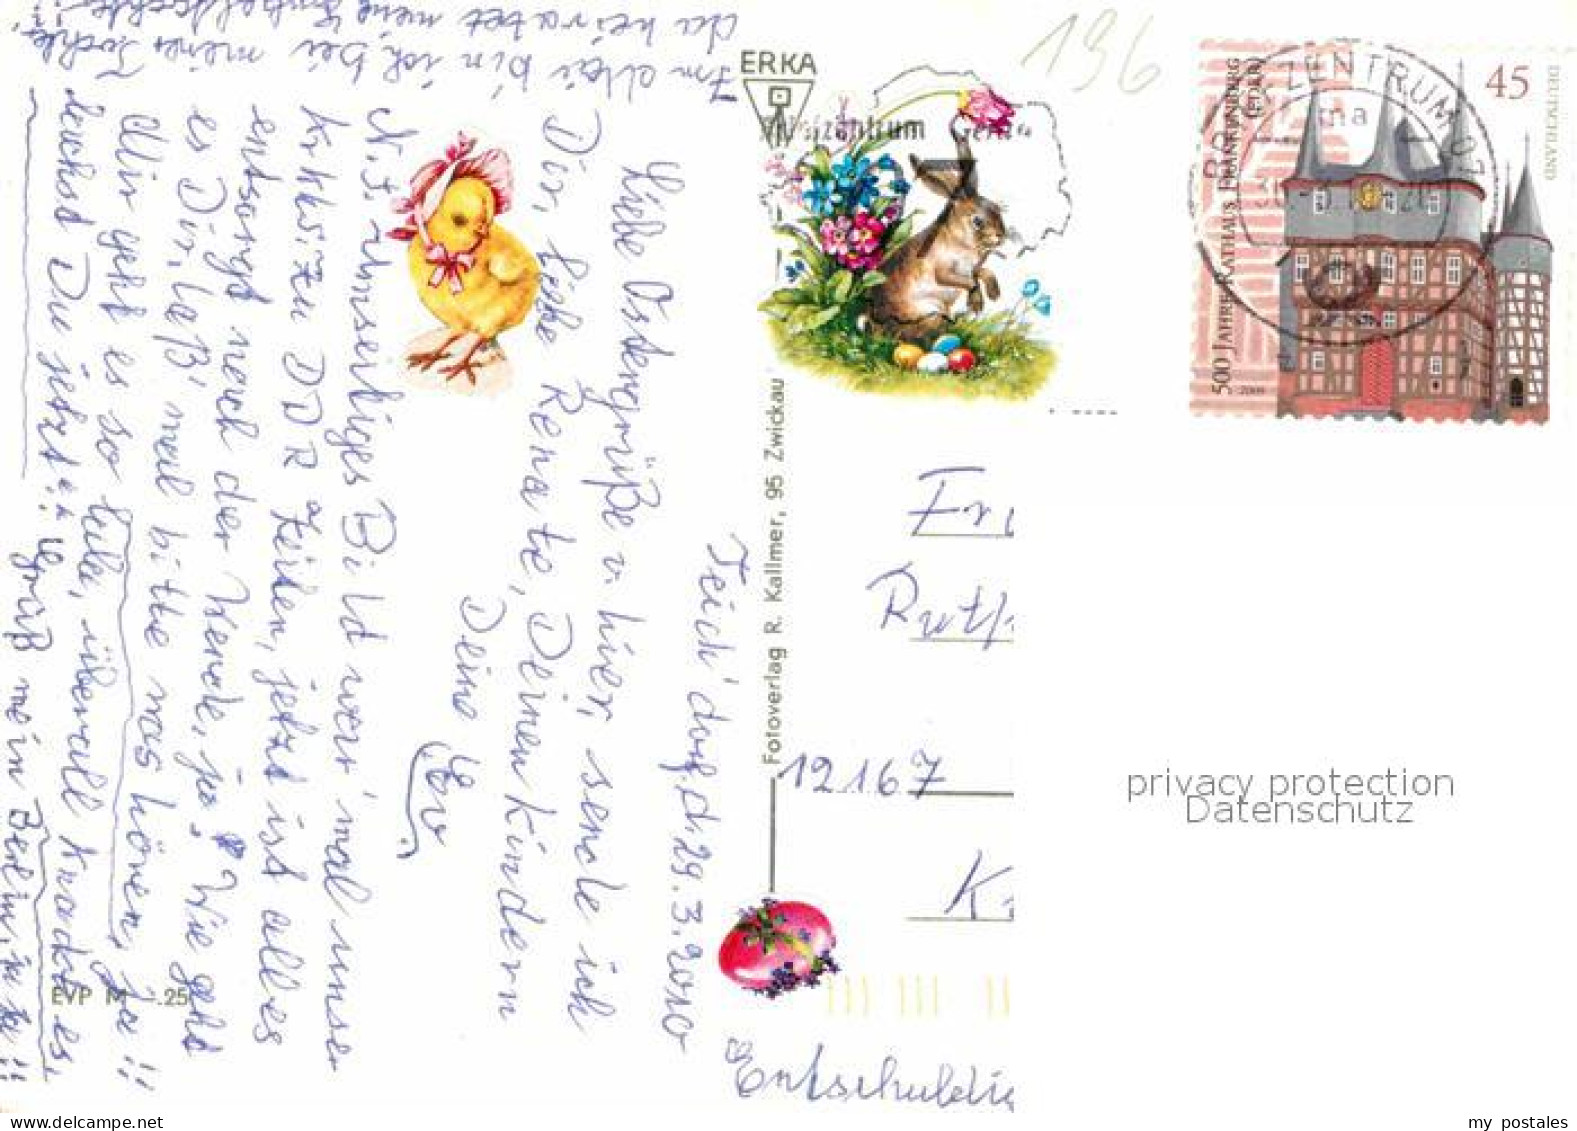 Teich'dorf, d. 29.3.2010
Liebe Ostergrüße v. hier, sende ich
Dir, liebe Renate, Deinen Kindern
Deine Ev.
N.S. Umseitiges Bild war 'mal unser
Kurhs. zu DDR Zeiten, jetzt ist alles
entsorgt nach der Wende, ja. Wie geht
es Dir, laß' mal bitte was hören, ja!!
Mir geht es so lala, überall knackt es.
wohnst Du jetzt
Gruß mein Berlin
Im Mai bin ich bei meiner Tochter
da heiratet meine
ERKA
Briefzentrum
Fotoverlag R. Kallmer, 95 Zwickau
EVP M -.25
196
ZENTRUM 07
45
DEUTSCHLAND
500 JAHRE RATHAUS FRANKENBERG
(EDER)
2009
12167
Entschuldi
privacy protection
Datenschutz
my postales